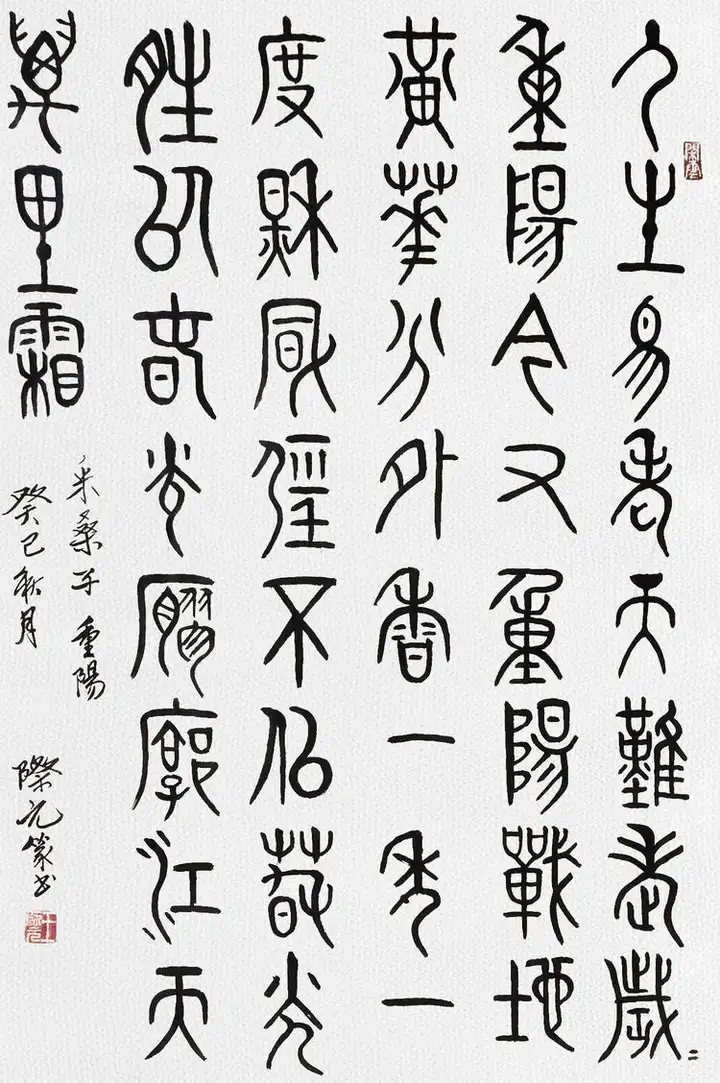 人生易老天難老歲〻
重陽今又重陽戰地
黃華分外香一年一
度秋風勁不似春光
勝似春光寥廓江天
萬里霜
采桑子 重陽
癸巳秋月
際元篆書